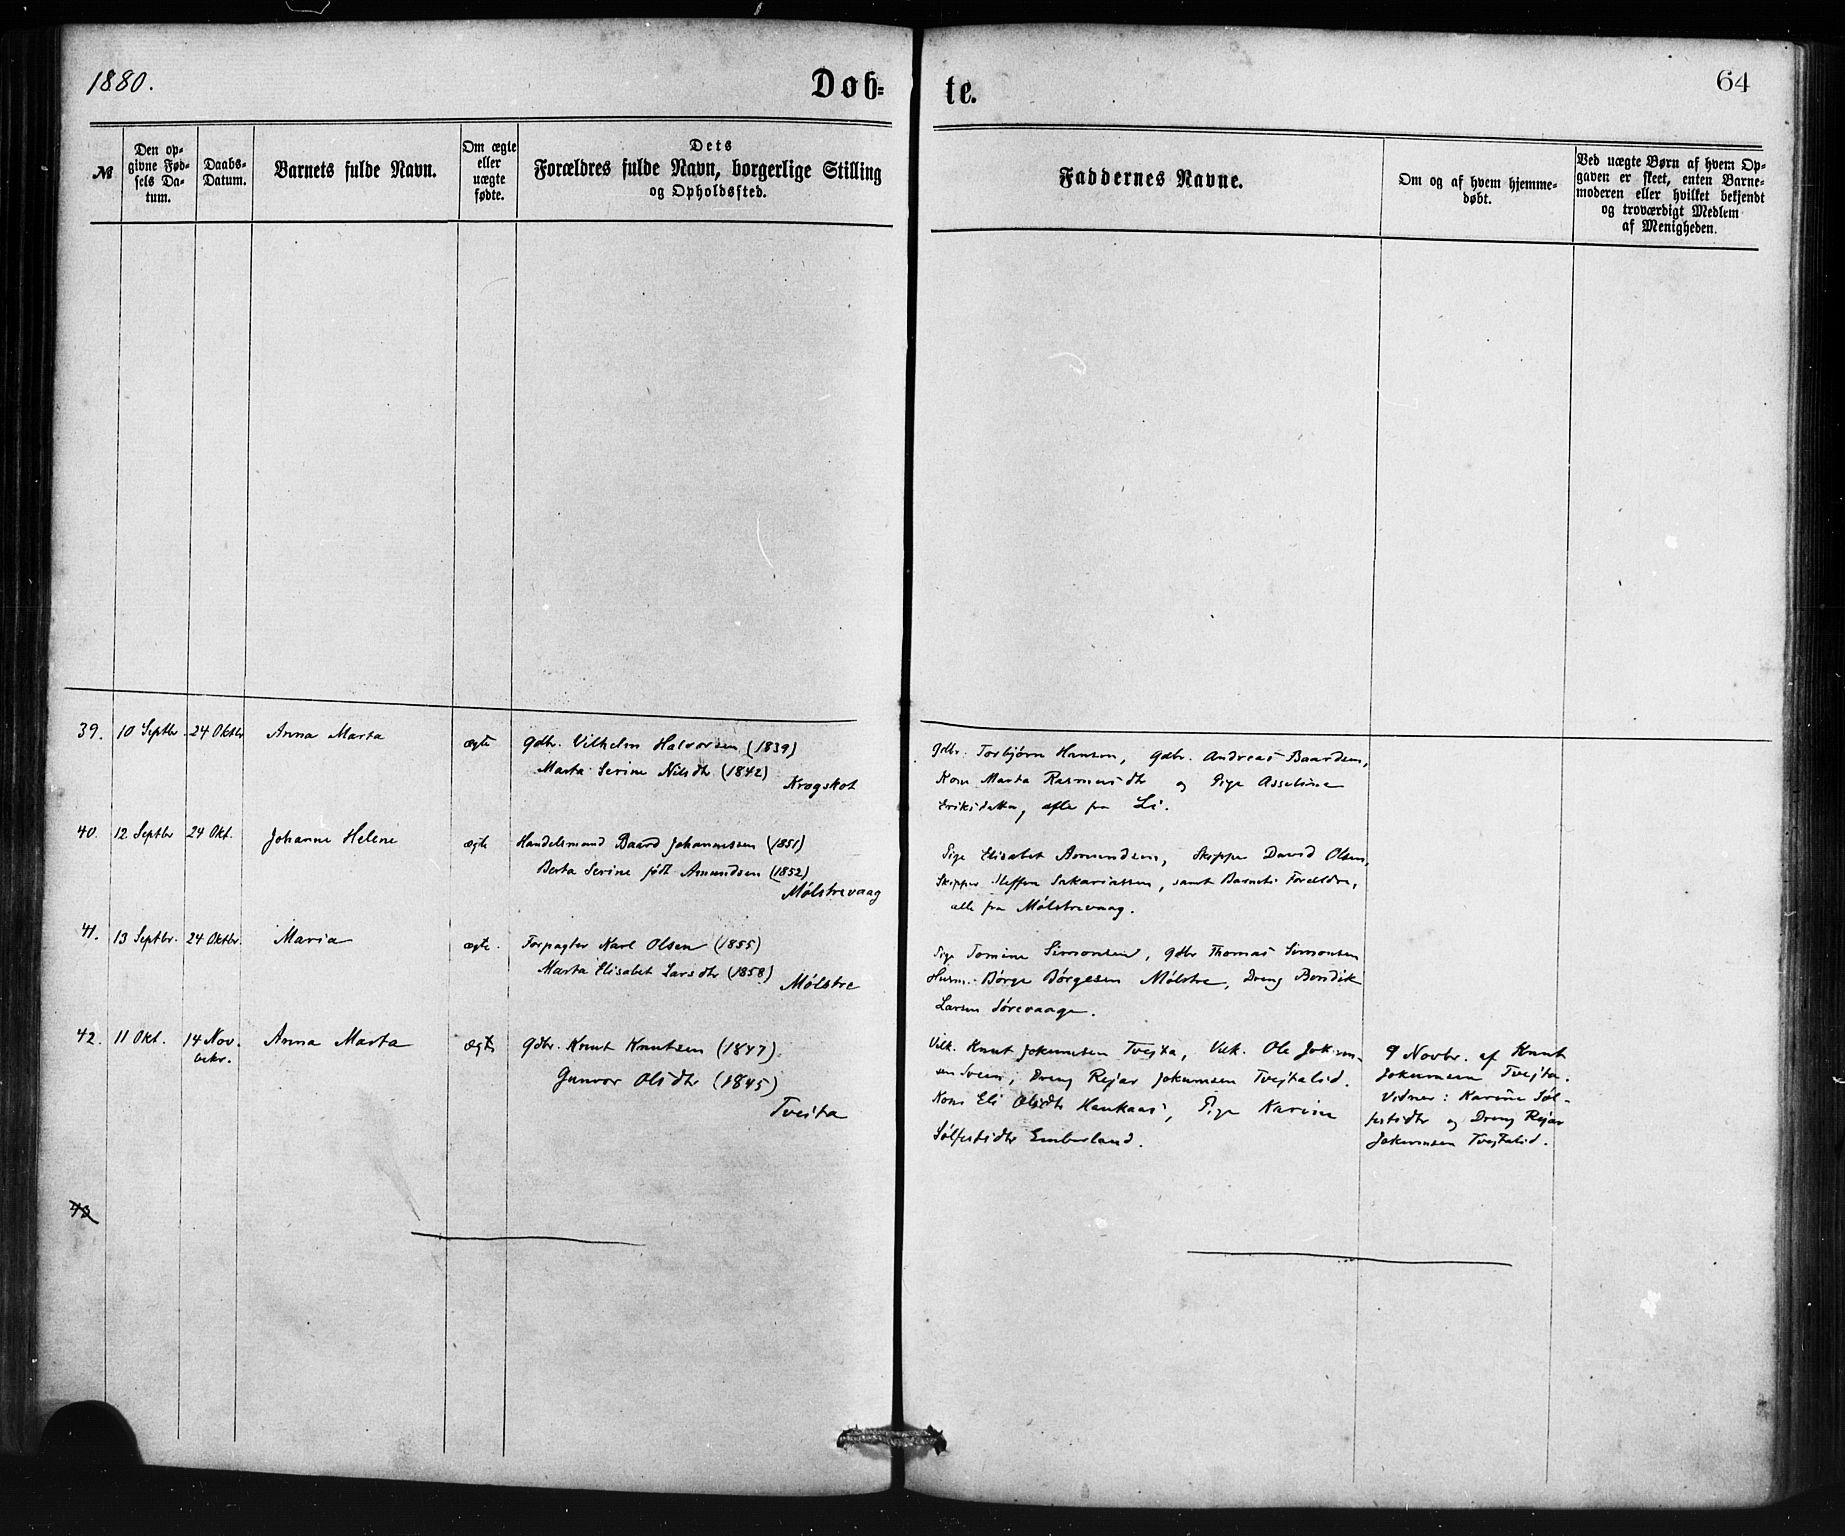 1880.
Døb-
te.
64
№
Den op-
givne Fød-
sels Da-
tum.
Daabs-
Datum.
Barnets fulde Navn.
Om ægte
eller
uægte
fødte.
Dets
Forældres fulde Navn, borgerlige Stilling
og Opholdssted.
Faddernes Navne.
Om og af hvem hjemme-
døbt.
Ved uægte Børn af hvem Op-
gaven er skeet, enten Barne-
moderen eller hvilket bekjendt
og troværdigt Medlem
af Menigheden.
39. 10 Septbr. 24 Oktbr Anna Marta ægte Gdbr. Vilhelm Halvorsen (1839)
Marta Serine Nilsdtr (1842)
Krogskot
Gdbr. Torbjørn Hansen, Gdbr. Andreas Baardsen,
Kone Marta Rasmusdtr og Pige Asseline
Eriksdatter, alle fra Li.
40. 12 Septbr 24 Okt. Johanne Helene ægte Handelsmand Baard Johannessen (1851)
Berta Serine født Amundsen (1852)
Mølstrevaag
Pige Elisabet Amundsen, Skipper David Olsen,
Skipper Steffen Sakariassen, samt Barnets Forældre,
alle fra Mølstrevaag.
41. 13 Septbr. 24 Oktbr. Maria ægte. Forpagter Karl Olsen (1855)
Marta Elisabet Larsdtr (1858)
Mølstre
Pige Tomine Simonsen, Gdbr Thomas Simonsen
Husm. Børge Børgesen Mølstre, Dreng Bendik
Larsen Sørevaage.
42. 11 Okt. 14 Nov. Anna Marta ægte Gdbr. Knut Knutsen (1847)
bekr.
Gunvor Olsdtr (1845)
Tveita
Vilk. Knut Jokumsen Tvejta, Vilk. Ole Jokum-
sen Sveen, Dreng Rejar Jokumsen Tvejtalid.
Kone Eli Olsdtr Haukaas, Pige Karine
Sølfestsdtr Emberland.
9 Novbr. af Knut
Jokumsen Tvejta.
Vidner: Karine Søl-
festsdtr og Dreng Rejar
Jokumsen Tvejtalid.
43